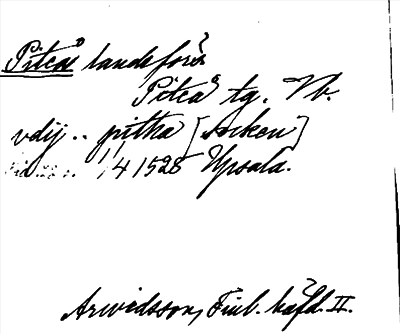 Piteå landsförs
Piteå tg. Vb.
vdij .. pitha [socken]
1/4 1528 Upsala.
Arwidsson, Finl. häfd. II.